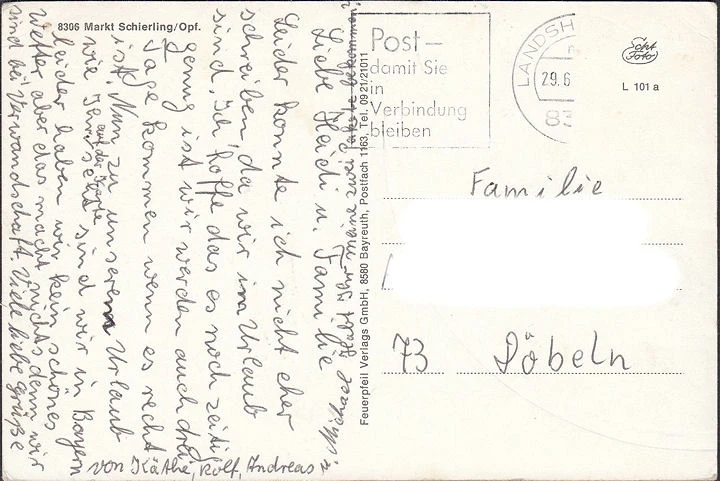 8306 Markt Schierling/Opf.
Liebe Heidi u. Familie
Leider konnte ich nicht eher
schreiben da wir im Urlaub
sind. Ich hoffe das es noch zeitig
genug ist wir werden auch drei
Tage kommen wenn es recht
ist. Nun zu unserem Urlaub
wie Ihr auf der Karte
seht sind wir in Bayern
leider haben wir kein schönes
Wetter aber das macht nichts denn wir
sind bei Verwandschaft. Viele liebe Grüße
von Käthe, Rolf, Andreas
u. Michael
habt Ihr meine zwei Pakete bekommen?
Feuerpfeil Verlags GmbH, 8580 Bayreuth, Postfach 1163, Tel. 09 21/21011
Post –
damit Sie
in
Verbindung
bleiben
LANDSH
29.6
83
Echt
Foto
L 101 a
Familie
73 Döbeln